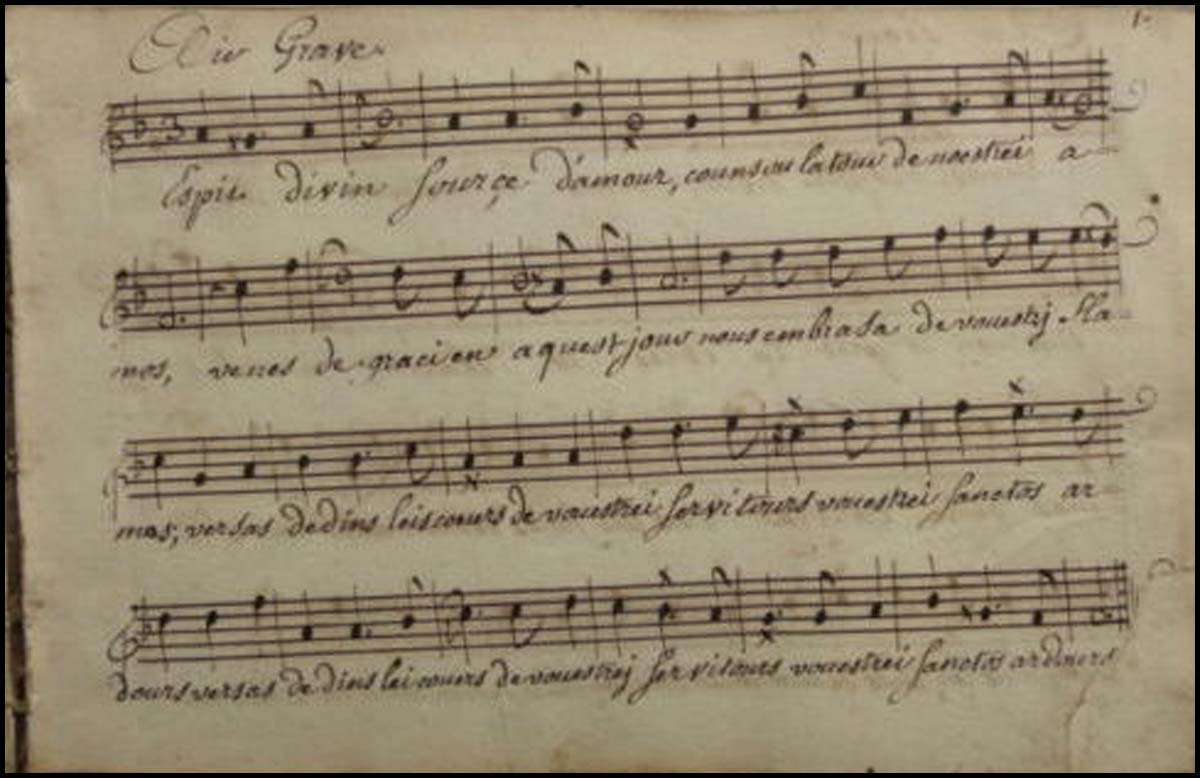 Air Grave
1.
3
Espir divin sourçe d'amour, counsoulatour de noestrei a-
mos, venes de graci en aquest jour nous embrasa de vouestrj fla-
mos; versas dedins leis cœurs de vouestrei servitours vouestrei sanctos ar-
dours versas dedins lei couers de vouestrej servitours vouestrei sanctos ardours